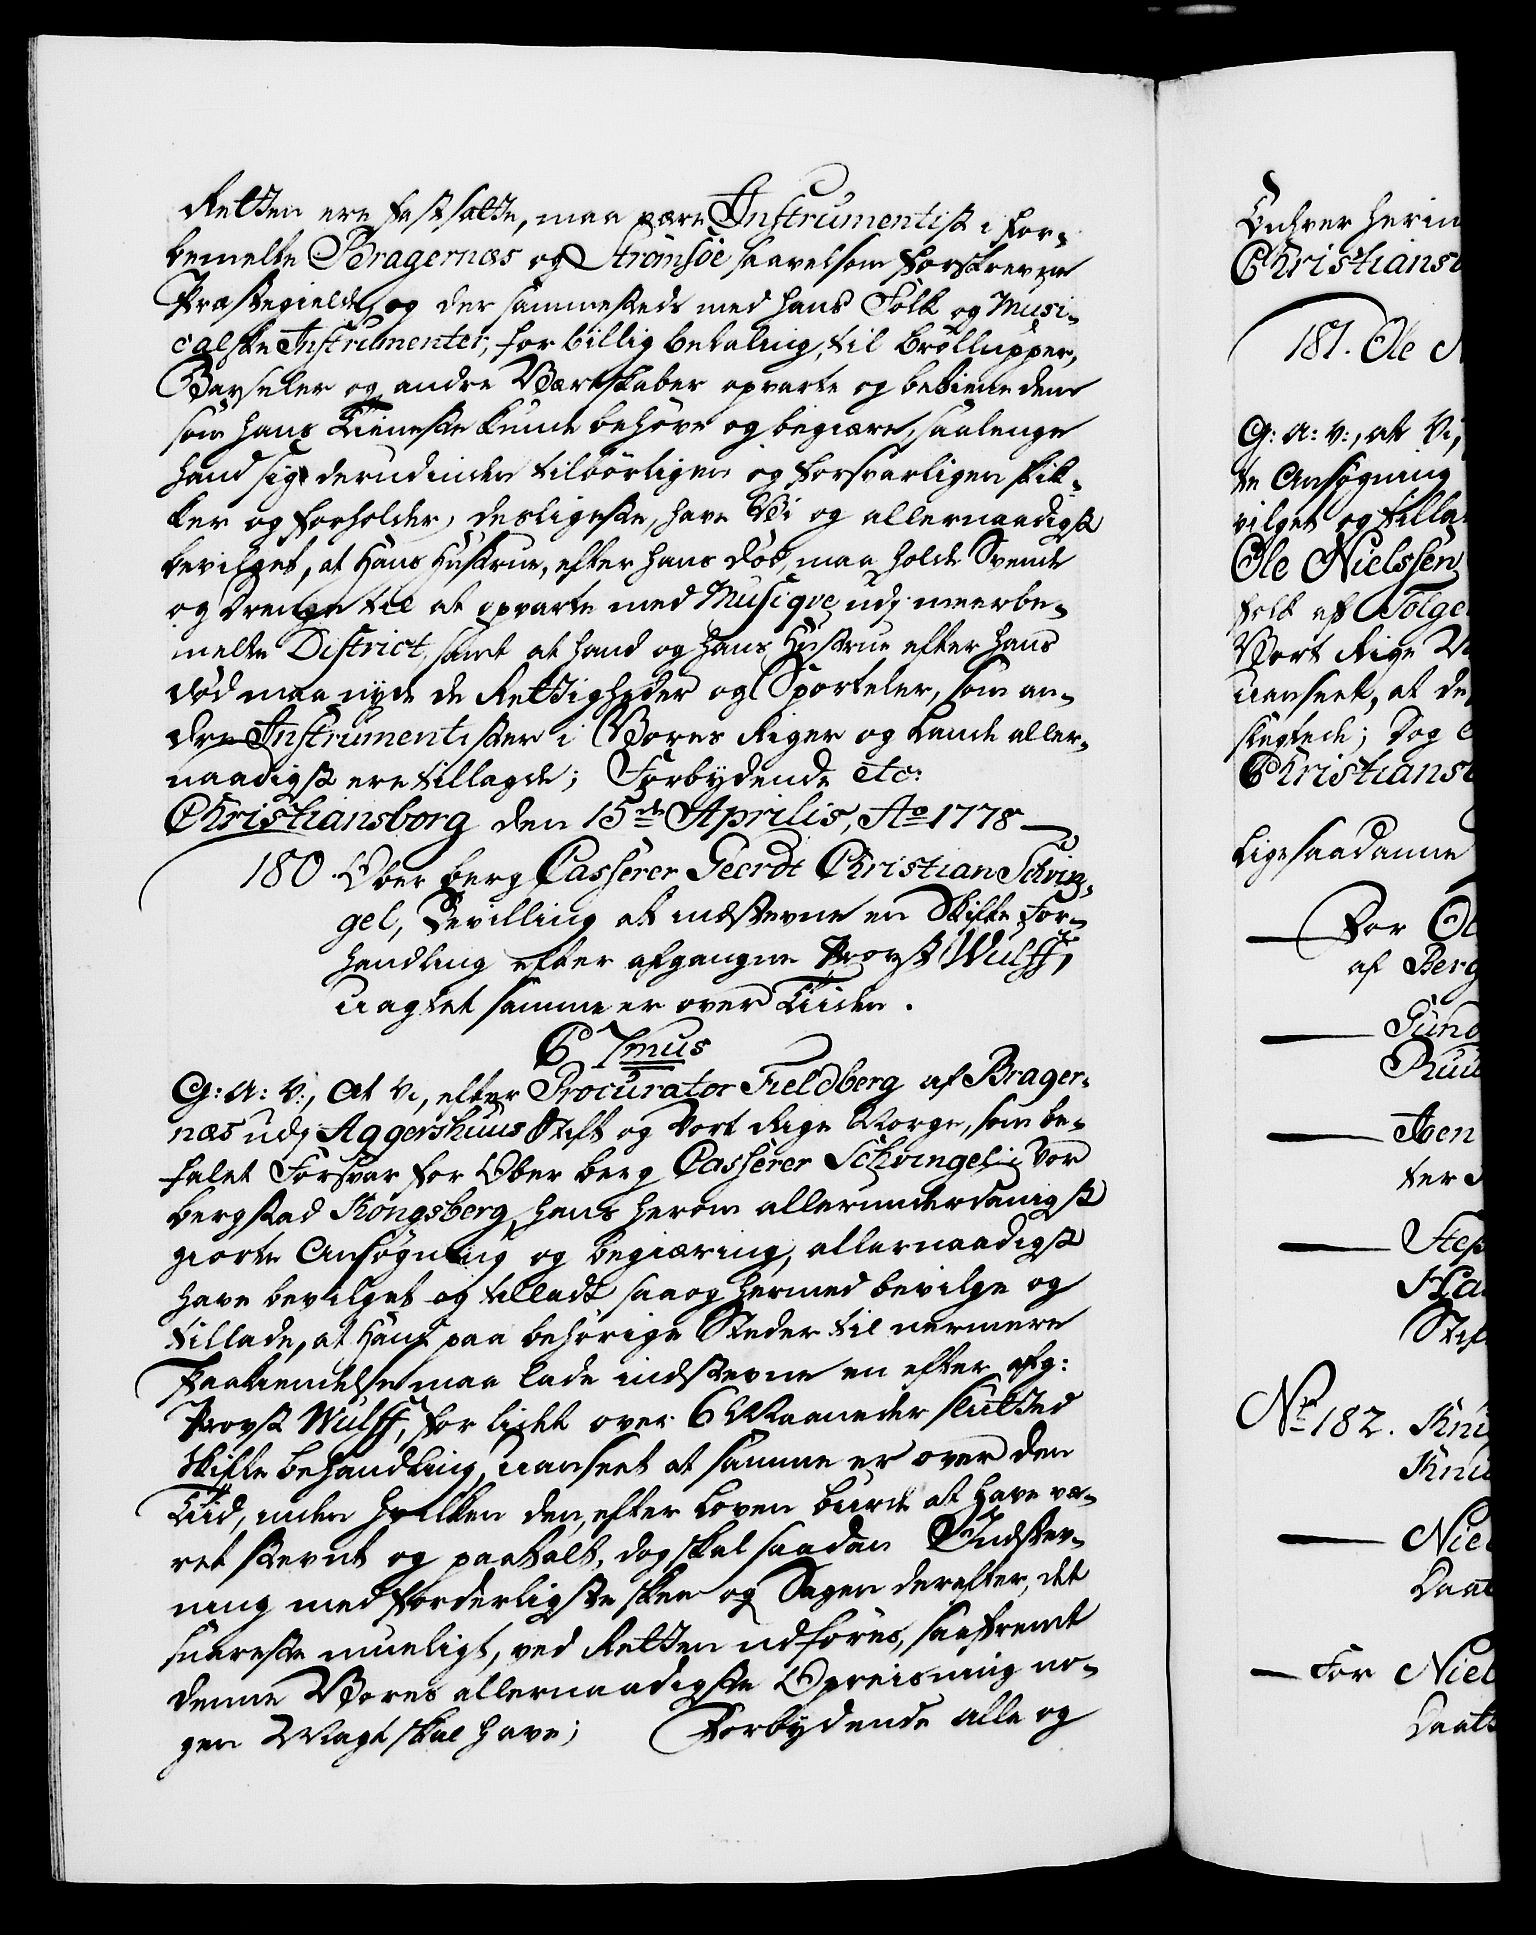 Retten ere fastsatte, maa være Instrumentist i for-
bemelte Bragernæs og Strømsöe saavelsom forskrevne
Præstegield, og der sammesteds med hans Folk og Musi-
calske Instrumenter, for billig betaling, til Bröllupper,
Barseler og andre Vertskaber opvarte og betiene dem
som hans Tieneste kunde behöve og begiære, saalenge
hand sig derudinden tilbörligen og forsvarligen skik-
ker og forholder, desligeste, have Vi og allernaadigst
bevilget, at Hans Hustrue, efter hans död, maa holde Svende
og Drenge til at opvarte med Musiqve udj meerbe-
melte District, samt at hand og hans Hustrue efter hans
död maa nyde de Rettigheder og Sporteler, som an-
dre Instrumentister i Vores Riger og Lande aller-
naadigst ere tillagde; Forbydende etc:
Christiansborg den 15de Aprilis, Ao 1778
180. Ober berg Casserer Geerdt Christian Schvin-
gel, Bevilling at indstevne en Skifte For-
handling efter afgangne Provst Wulff,
uagtet samme er over Tiden.
C 7mus
G: A: V:, At Vi, efter Procurator Fieldberg af Brager-
næs udj Aggershuus Stift og Vort Rige Norge, som be-
falet Forsvar for Ober berg Casserer Schvingel i Vor
bergstad Kongsberg, hans herom allerunderdanigst
giorte Ansøgning og begiæring, allernaadigst
have bevilget og tilladt saa og hermed bevilge og
tillade, at Hand paa behörige Steder til nermere
Paakiendelse maa lade indstevne en efter afg:
Provst Wulff, for lidt over 6 Maaneder slutted
Skifte behandling, uanseet at samme er over den
Tiid, inden hvilken den, efter Loven burde at have væ-
ret stevnt og paatalt, dog skal saadan Indstev-
ning med forderligste skee og Sagen derefter, det
snareste mueligt, ved Retten udföres, saafremt
denne Vores allernaadigste Opreisning no-
gen Magt skal have; Forbydende alle og
Enhver herin
Christians
181. Ole
G: A: V:, at Vi,
te Ansøgning
vilget og tilla
Ole Nielssen
folk af Tolge
Vort Rige
uanseet, at de
slegtede; Dog
Christians
Ligesaadanne
For
af Berg
Gund
Ruu
ter
Step
Ha
Stif
No 182. Knu
Knu
Niel
Daat
For Niel
Daat